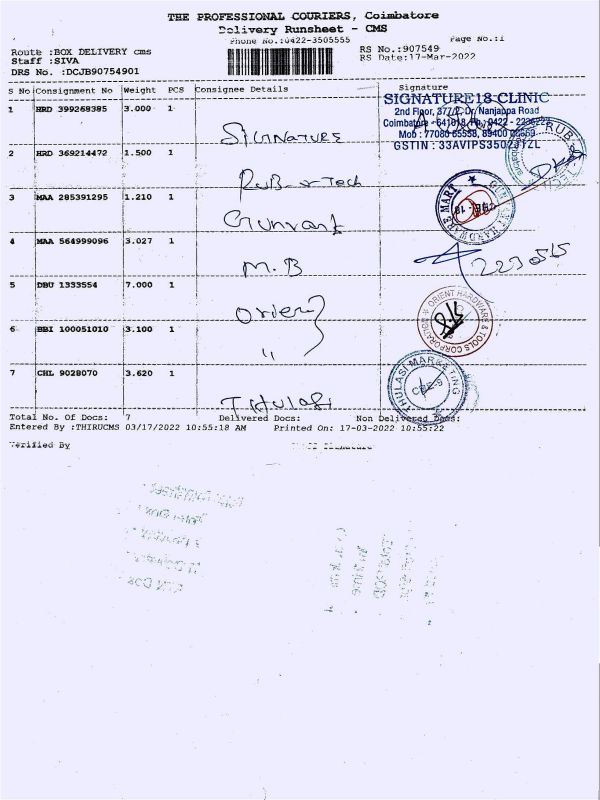 THE PROFESSIONAL COURIERS, Coimbatore
Delivery Runsheet - CMS
Phone No.:0422-3505555 Page No.:1
Route :BOX DELIVERY cms RS No.:907549
Staff :SIVA RS Date:17-Mar-2022
DRS No. :DCJB90754901
S No Consignment No Weight PCS Consignee Details Signature
1 HRD 399268385 3.000 1 SIGNATURE
SIGNATURE 18 CLINIC
2nd Floor, 377/2, Dr. Nanjappa Road
Coimbatore - 641018, Ph: 0422 -
Mob : 77080 65558, 89400
GSTIN : 33AVIPS3502J1ZL
2 HRD 369214472 1.500 1 RUB-Tech
RUB TECH
3 MAA 285391295 1.210 1 Gunvant
GUNVANT HARDWARE MART
4 MAA 564999096 3.027 1 M.B
2230515
5 DBU 1333554 7.000 1 Orient
ORIENT HARDWARE & TOOLS CORPORATION
6 BBI 100051010 3.100 1 "
7 CHL 9028070 3.620 1 Thulasi
THULASI MARKETING
CBE
Total No. Of Docs: 7 Delivered Docs: Non Delivered Docs:
Entered By :THIRUCMS 03/17/2022 10:55:18 AM Printed On: 17-03-2022 10:55:22
Verified By Signature